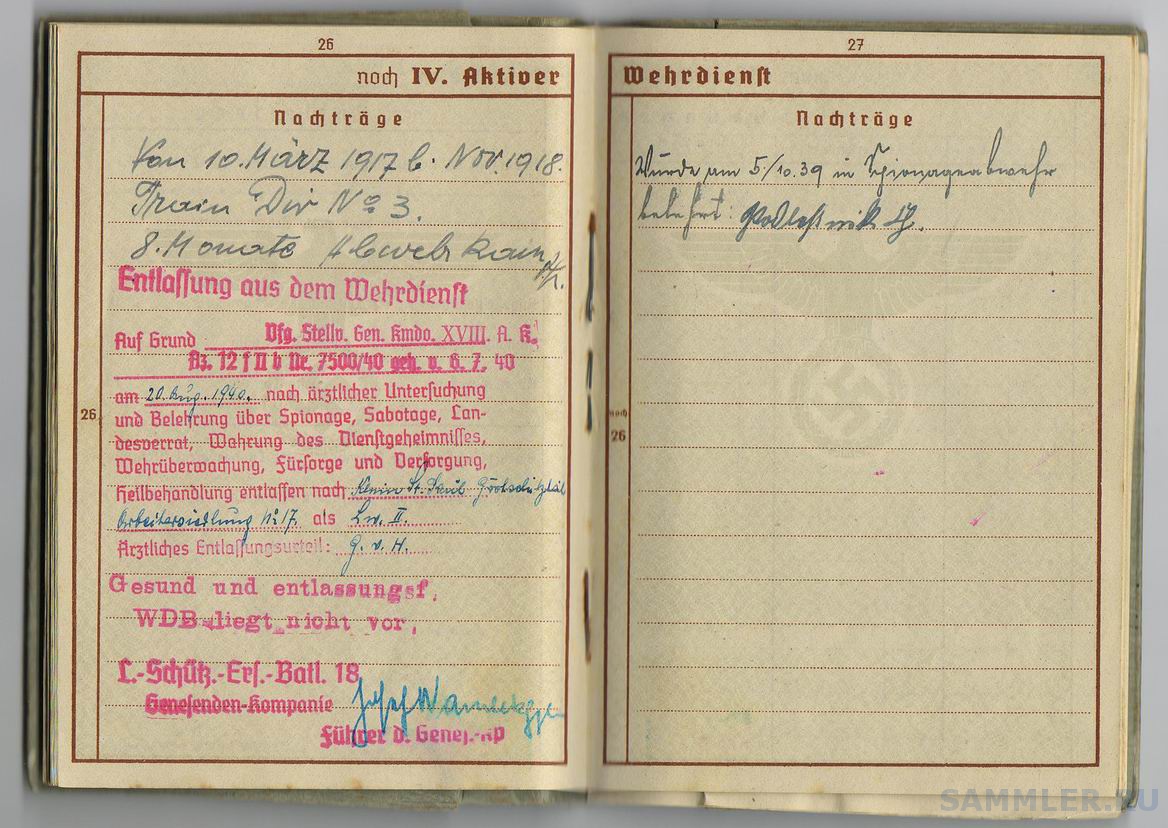 26
noch IV. Aktiver
Nachträge
Von 10. März 1917 b. Nov. 1918.
Train Div No 3.
8. Monate Abwehr
Entlassung aus dem Wehrdienst
Auf Grund Vfg. Stellv. Gen. Kmdo. XVIII. A. K.
Az. 12 f II b Nr. 7500/40 geh. v. 6. 7. 40
am 20. Aug. 1940. nach ärztlicher Untersuchung
und Belehrung über Spionage, Sabotage, Lan-
desverrat, Wahrung des Dienstgeheimnisses,
Wehrüberwachung, Fürsorge und Versorgung,
Heilbehandlung entlassen nach Klein St. Paul
Arbeitersiedlung No 17. als Lw. II.
Ärztliches Entlassungsurteil: g. v. H.
Gesund und entlassungsf.
WDB liegt nicht vor,
L.-Schütz.-Ers.-Batl. 18
Genesenden-Kompanie
Führer d. Genes.-Kp
26
27
Wehrdienst
Nachträge
Wurde am 5/10.39 in Spionageabwehr
belehrt:
noch
26
SAMMLER.RU